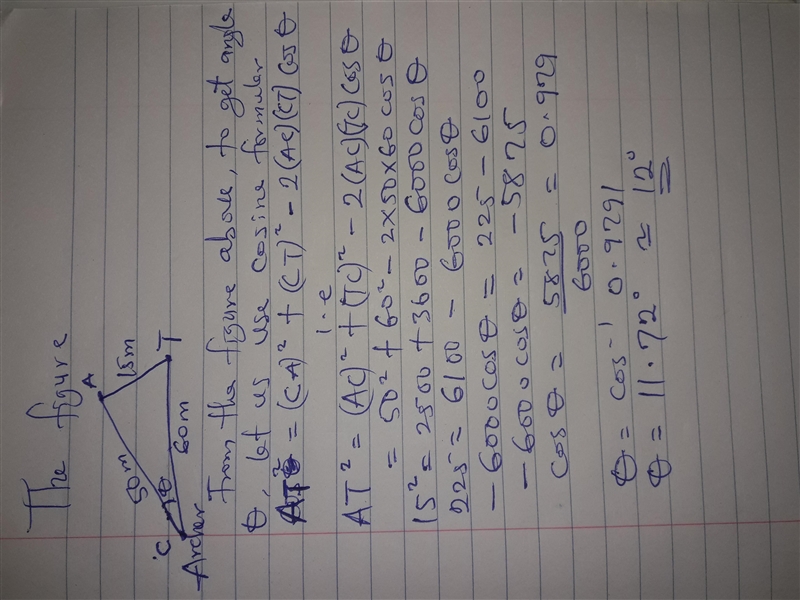 The figure
A
50m
15m
T
θ
60m
C
Archer
From the figure above, to get angle
θ, let us use cosine formular
AT² = (CA)² + (CT)² - 2(AC)(CT) cosθ
i.e
AT² = (AC)² + (TC)² - 2(AC)(TC) cosθ
= 50² + 60² - 2×50×60 cosθ
15² = 2500 + 3600 - 6000 cosθ
225 = 6100 - 6000 cosθ
-6000 cosθ = 225 - 6100
-6000 cosθ = -5875
cosθ = 5875/6000 = 0.979
θ = cos⁻¹ 0.9791
θ = 11.72° ≈ 12°